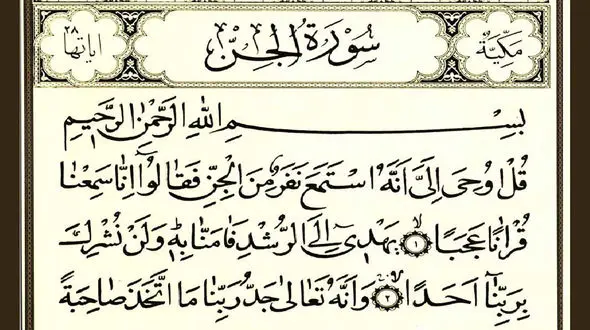 مكية سورة الجن اياتها ٢٨
بِسْمِ اللهِ الرَّحْمٰنِ الرَّحِيْمِ
قُلْ اُوْحِىَ اِلَىَّ اَنَّهُ اسْتَمَعَ نَفَرٌ مِّنَ الْجِنِّ فَقَالُوْۤا اِنَّا سَمِعْنَا
قُرْاٰنًا عَجَبًا ۙ﴿١﴾ يَّهْدِىْۤ اِلَى الرُّشْدِ فَاٰمَنَّا بِهٖ ؕ وَلَنْ نُّشْرِكَ
بِرَبِّنَاۤ اَحَدًا ۙ﴿٢﴾ وَّاَنَّهٗ تَعٰلٰى جَدُّ رَبِّنَا مَا اتَّخَذَ صَاحِبَةً